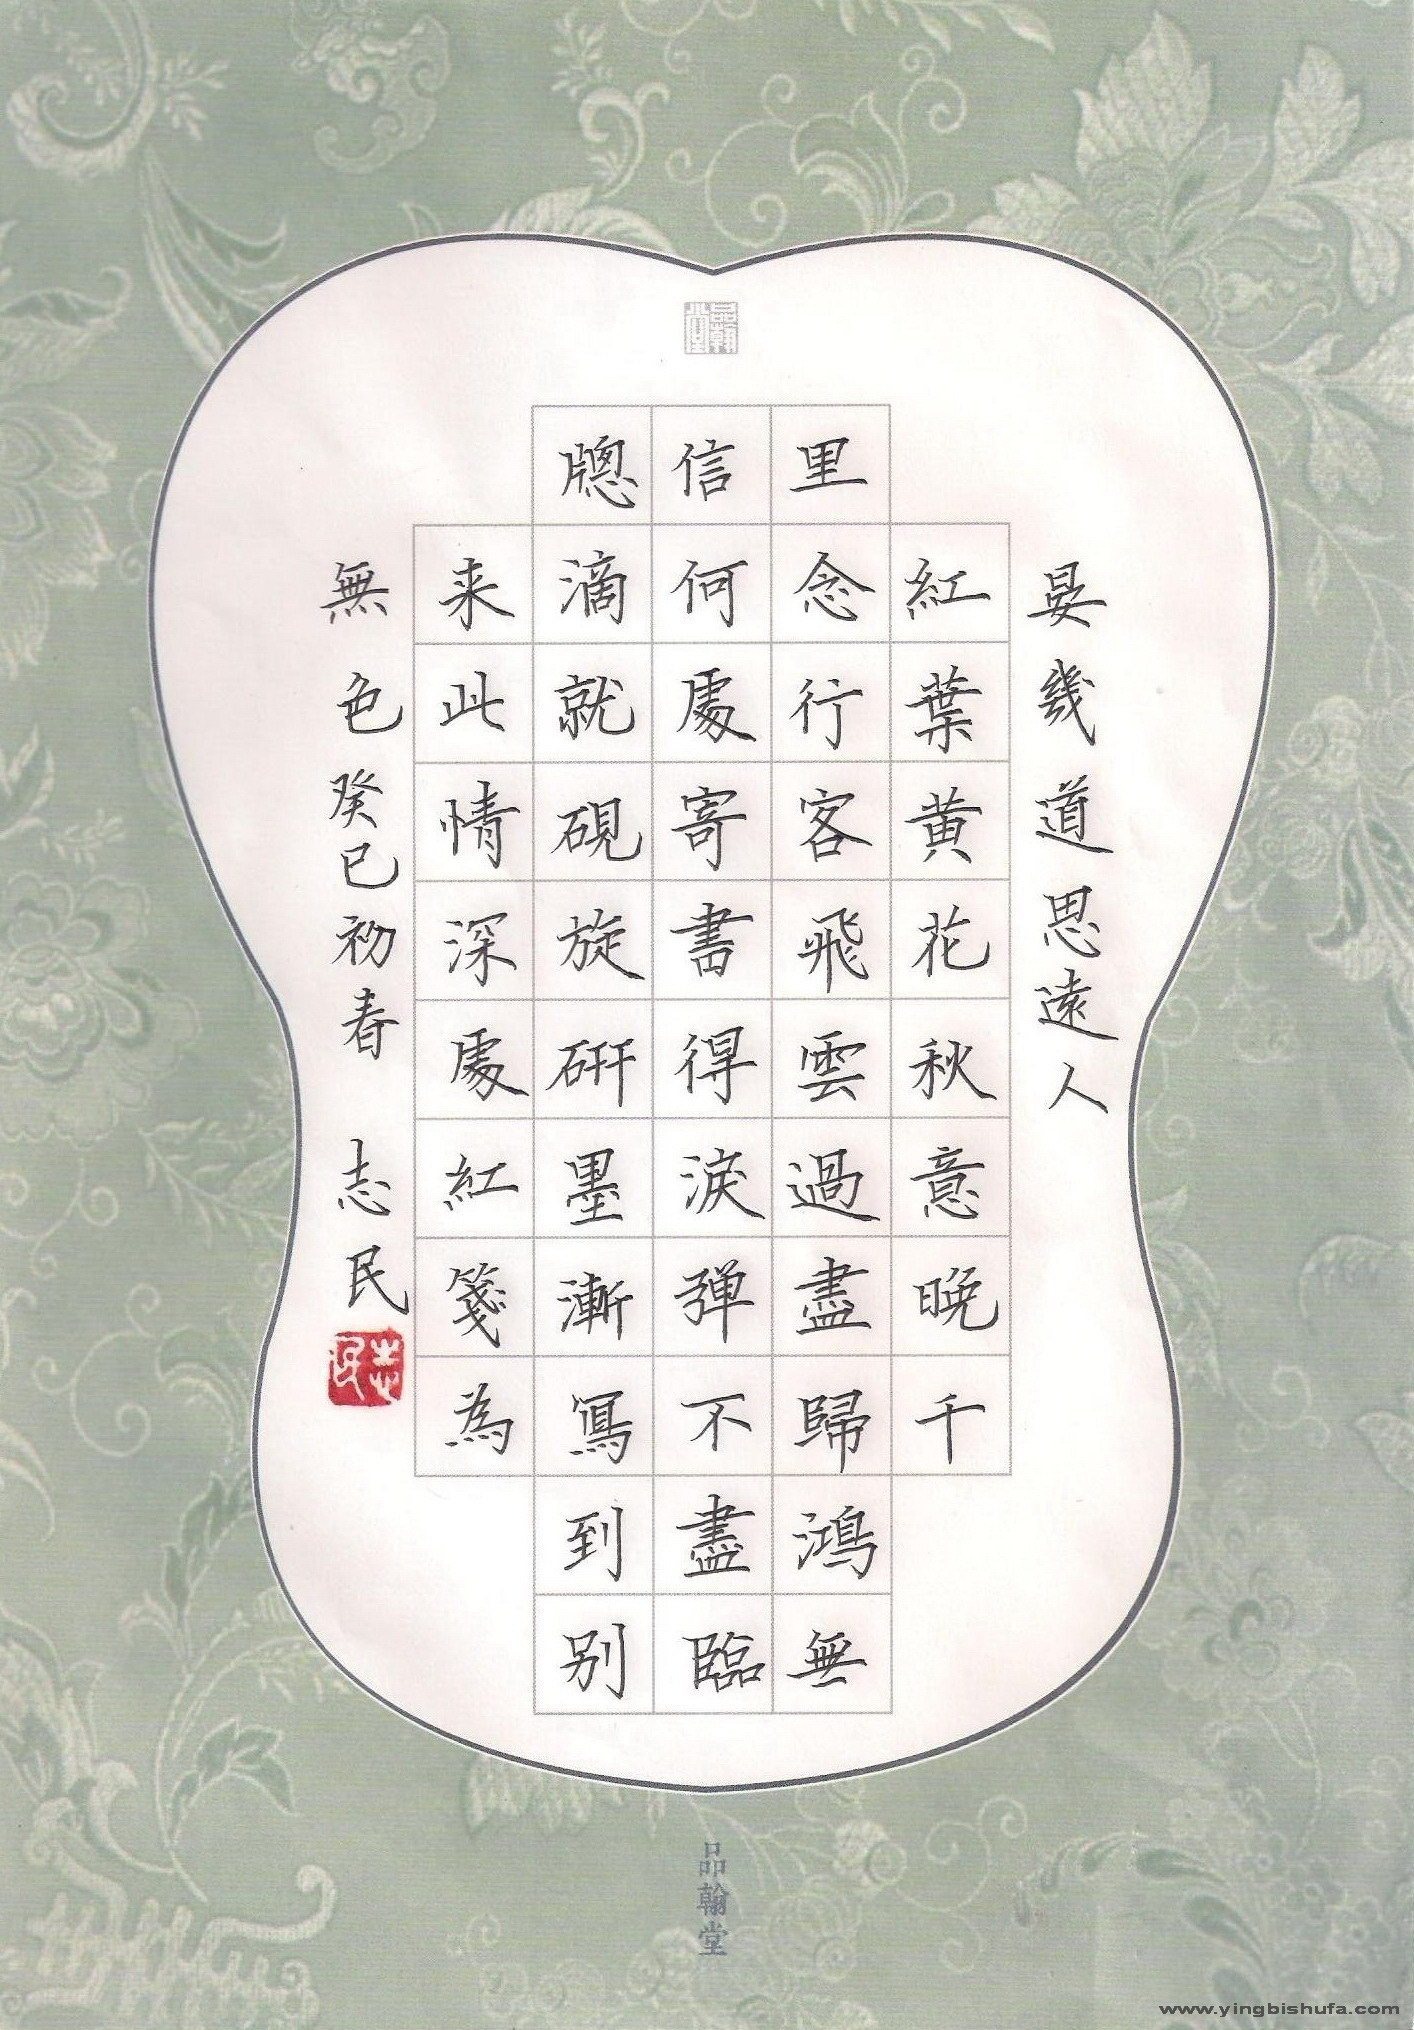 品翰堂
晏幾道思遠人
紅葉黄花秋意晚千
里念行客飛雲過盡歸鴻無
信何處寄書得淚弹不盡臨
牕滴就硯旋研墨漸寫到别
来此情深處紅箋為
無色癸巳初春 志民
志民
品翰堂
www.yingbishufa.com